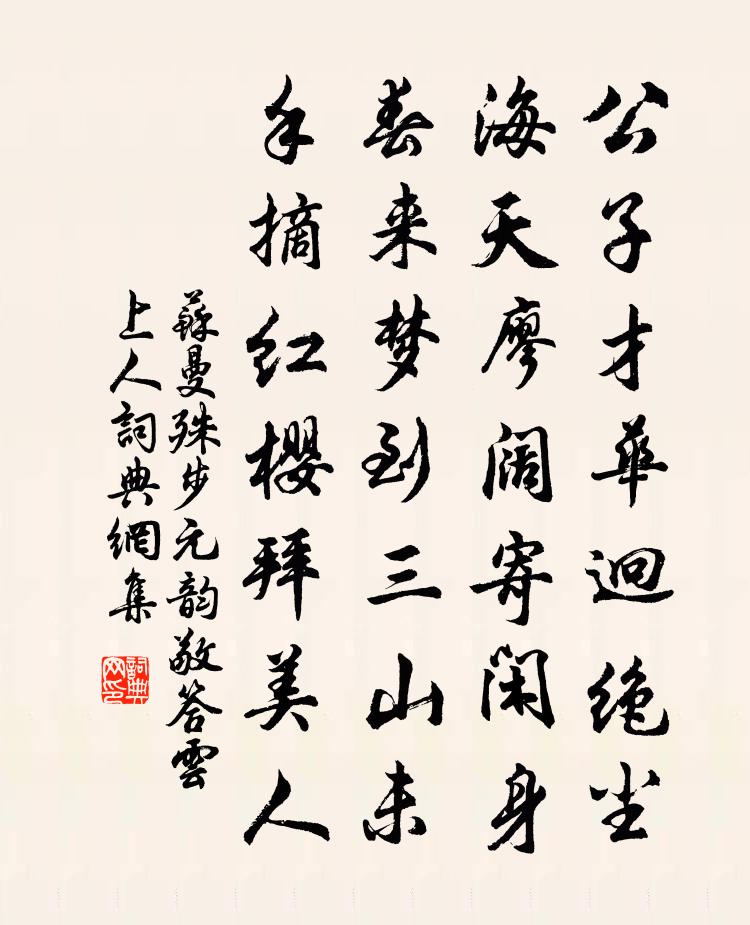 公子才華迥绝尘
海天廖阔寄闲身
春来梦到三山未
手摘红櫻拜美人
蘇曼殊步元韵敬答雲
上人詞典網集
詞典网印